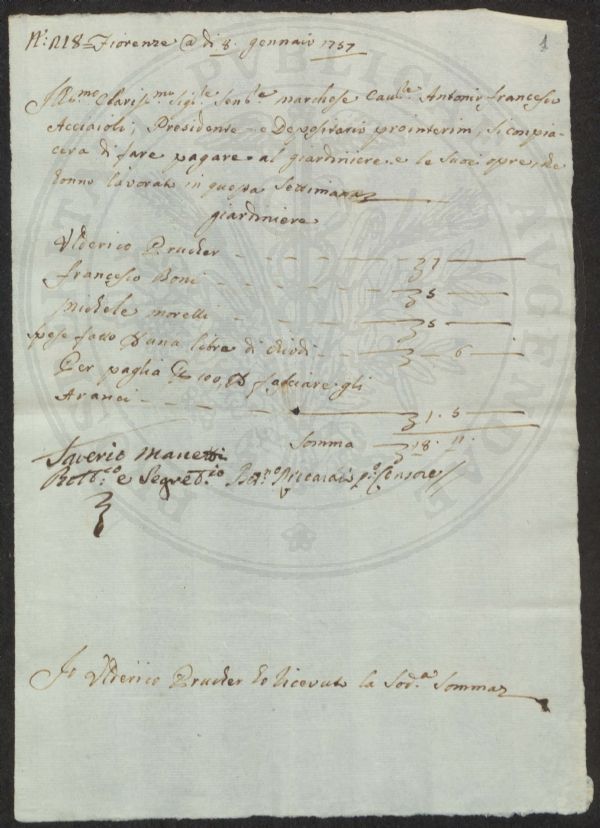 N.° 218 Fiorenze @ dì 8. gennaio 1757
1
Ill.mo Clariss.mo Sig.re Sen.re marchese Cav.re Antonio francesco
Acciaioli; Presidente e Depositario prointerim, si compia-
cerà di fare pagare al giardiniere e le Sue opre, che
hanno lavorato in questa Settimana
giardiniere
Ulderico Prucher 7
francesco Boni 5
Michele morelli 5
pese fatto d una libra di chiodi 6
Per paglia 100, fasciare gli
Aranci 1. 5
Somma 18. 11.
Saverio Manetti
Bott.co e Segret.rio
Io Ulderico Prucher ho ricevuto la Sod.a Somma
PUBLICAE
AUGENDAE